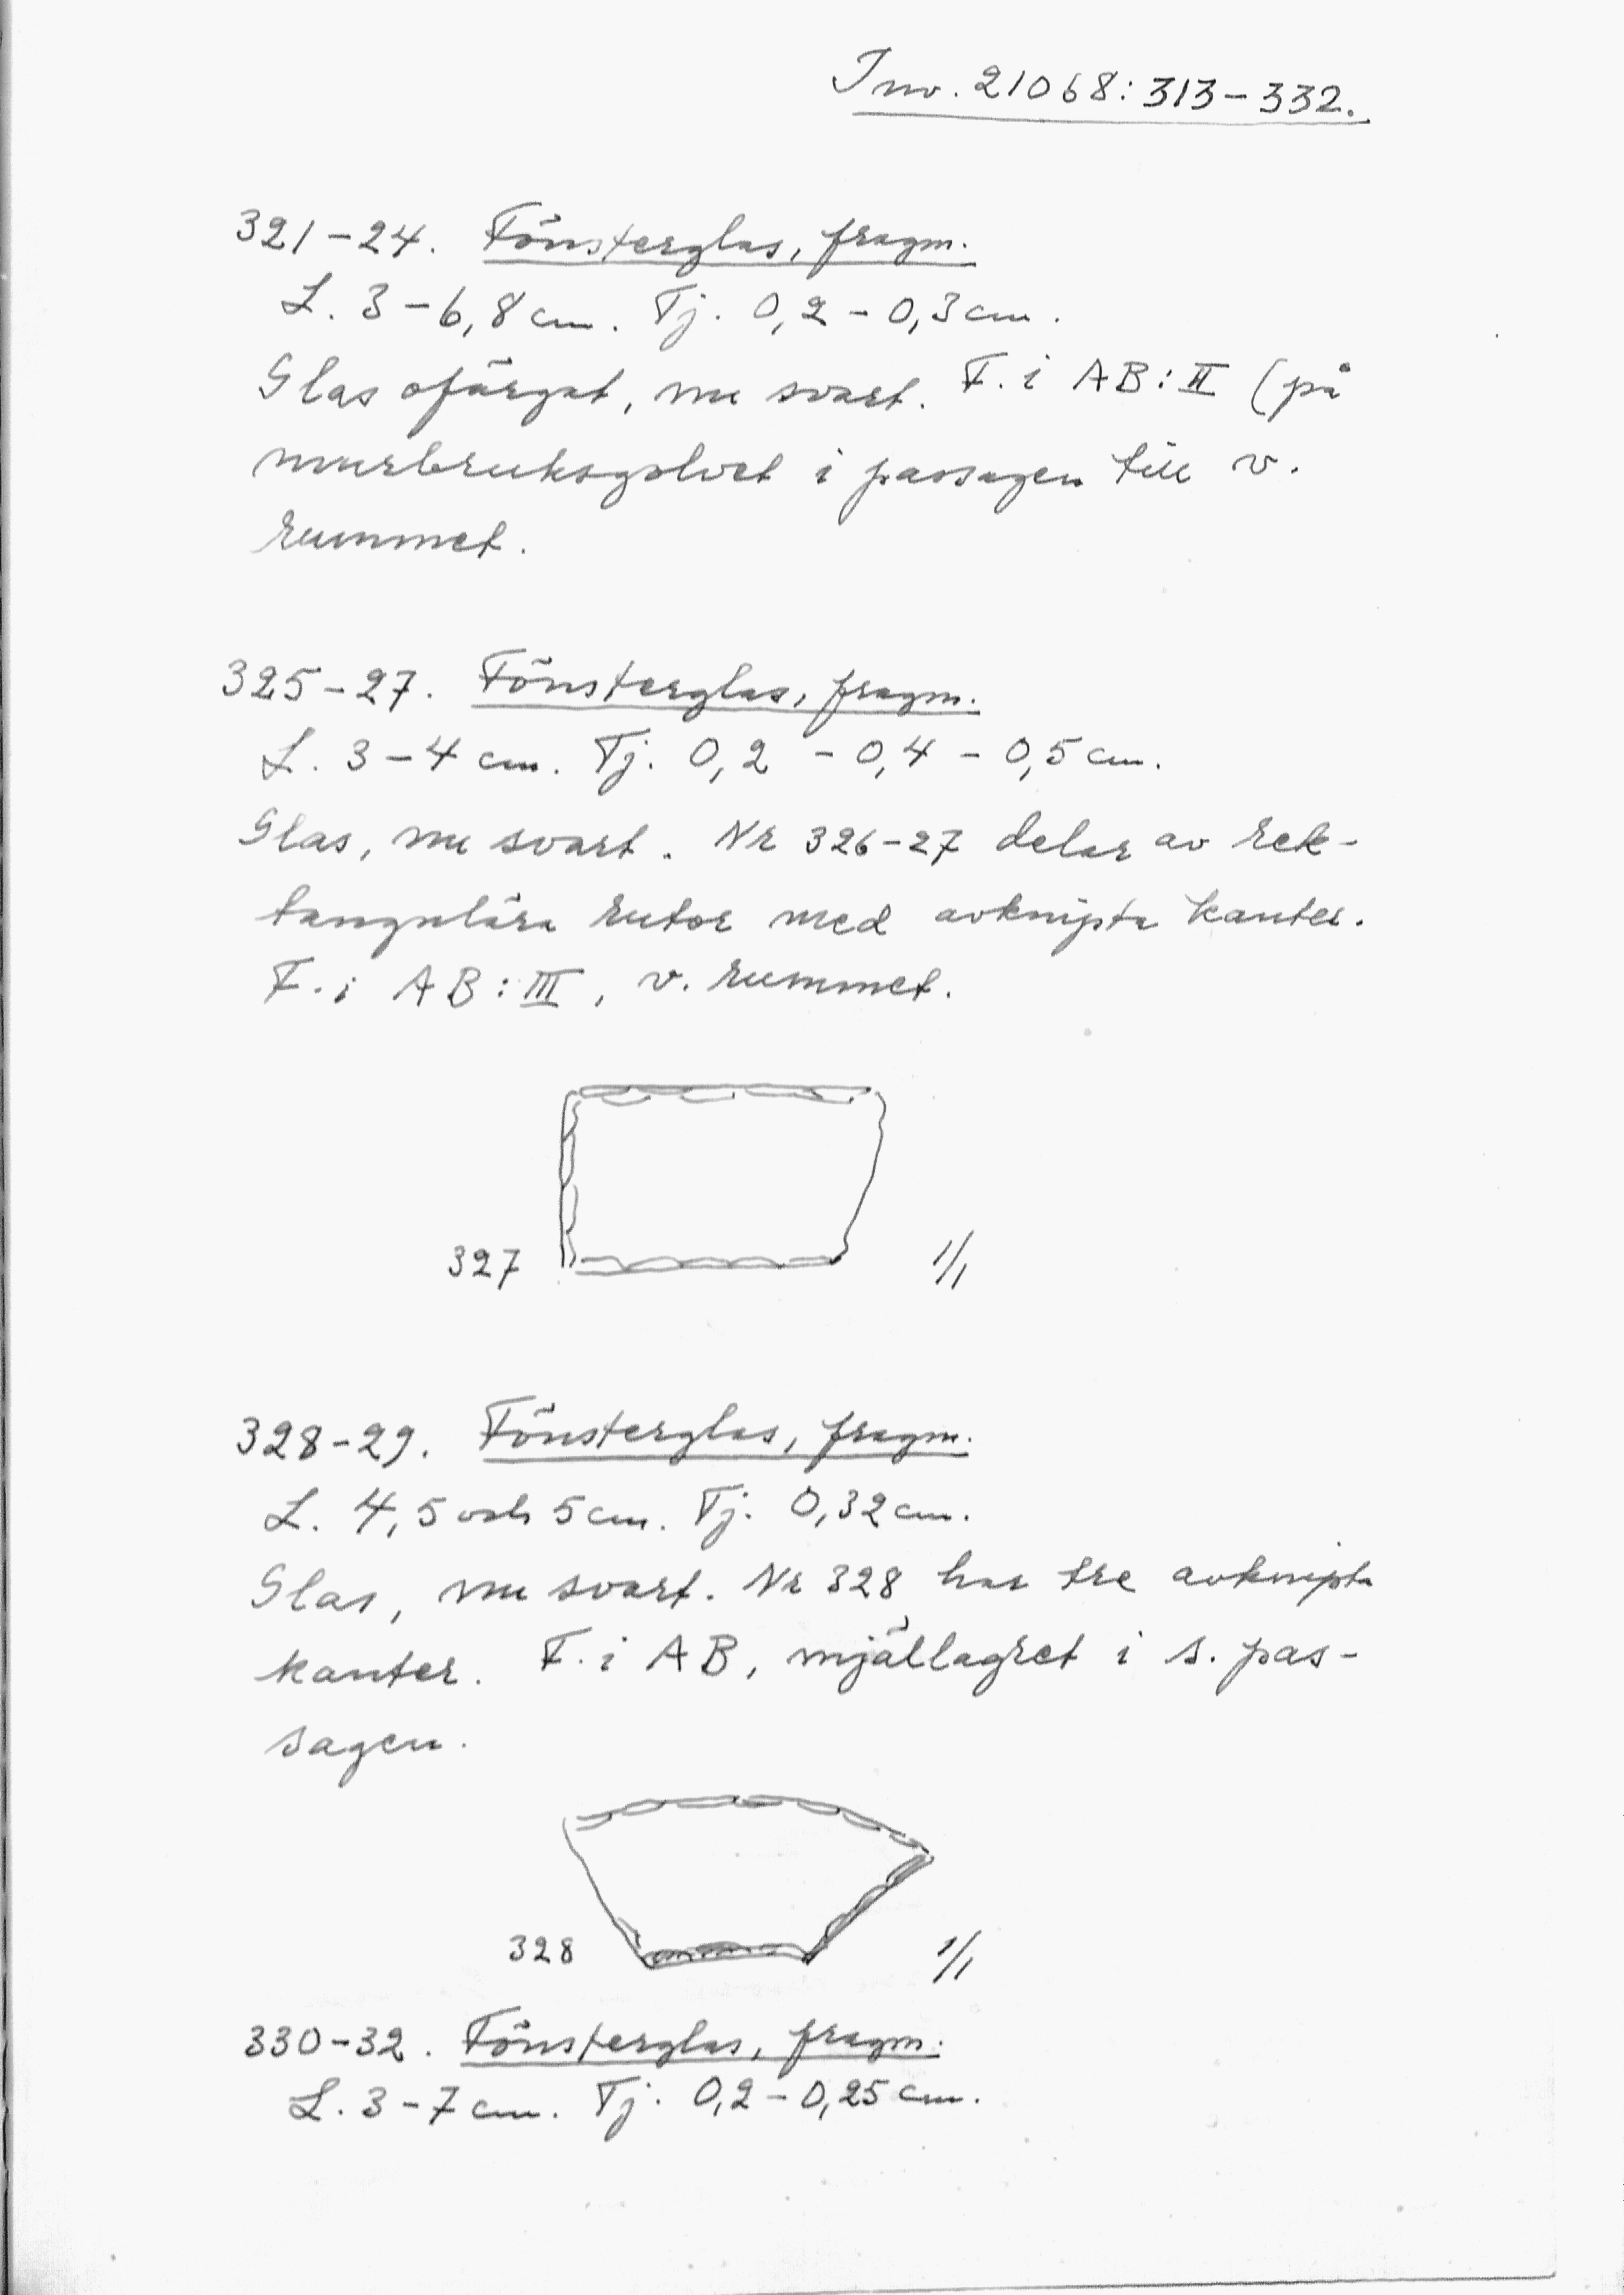 Inv. 21068: 313-332.
321-24. Fönsterglas, fragm.
L. 3-6,8 cm. Tj. 0,2-0,3 cm.
Glas ofärgat, nu svart. F. i AB: II (på
murbruksgolvet i passagen till v.
rummet.
325-27. Fönsterglas, fragm.
L. 3-4 cm. Tj. 0,2 - 0,4 - 0,5 cm.
Glas, nu svart. Nr 326-27 delar av rek-
tangulära rutor med avknipta kanter.
F. i AB: III, v. rummet.
327 1/1
328-29. Fönsterglas, fragm.
L. 4,5 och 5 cm. Tj. 0,32 cm.
Glas, nu svart. Nr 328 har tre avknipta
kanter. F. i AB, mjällagret i s. pas-
sagen.
328 1/1
330-32. Fönsterglas, fragm.
L. 3-7 cm. Tj. 0,2-0,25 cm.